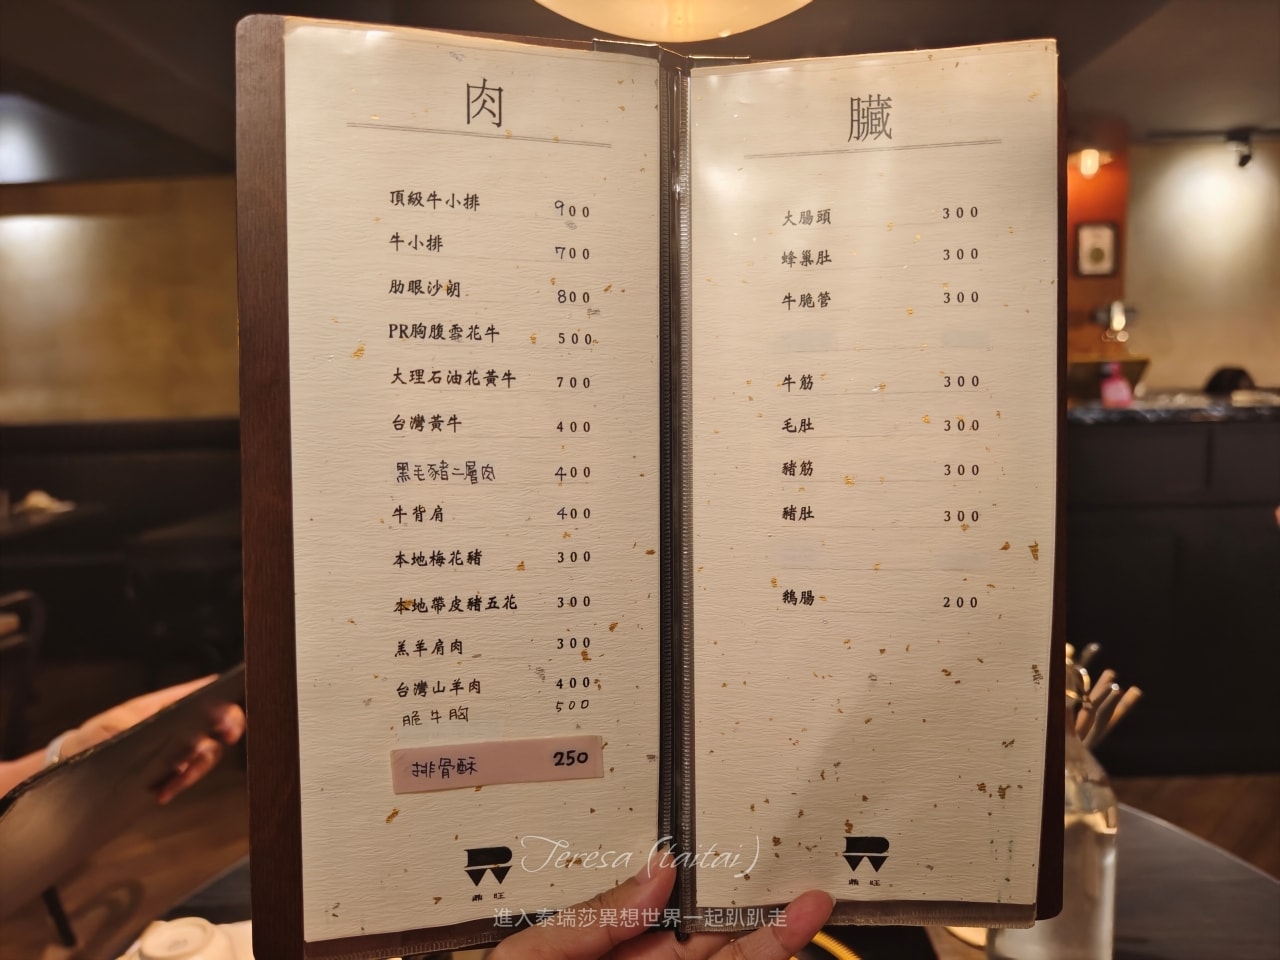 肉
頂級牛小排 900
牛小排 700
肋眼沙朗 800
PR胸腹雪花牛 500
大理石油花黃牛 700
台灣黃牛 400
黑毛豬二層肉 400
牛背肩 400
本地梅花豬 300
本地帶皮豬五花 300
羔羊肩肉 300
台灣山羊肉 400
脆牛胸 500
排骨酥 250
鼎旺
臟
大腸頭 300
蜂巢肚 300
牛脆管 300
牛筋 300
毛肚 300
豬筋 300
豬肚 300
鵝腸 200
鼎旺
Teresa (taitai)
進入泰瑞莎異想世界一起趴趴走